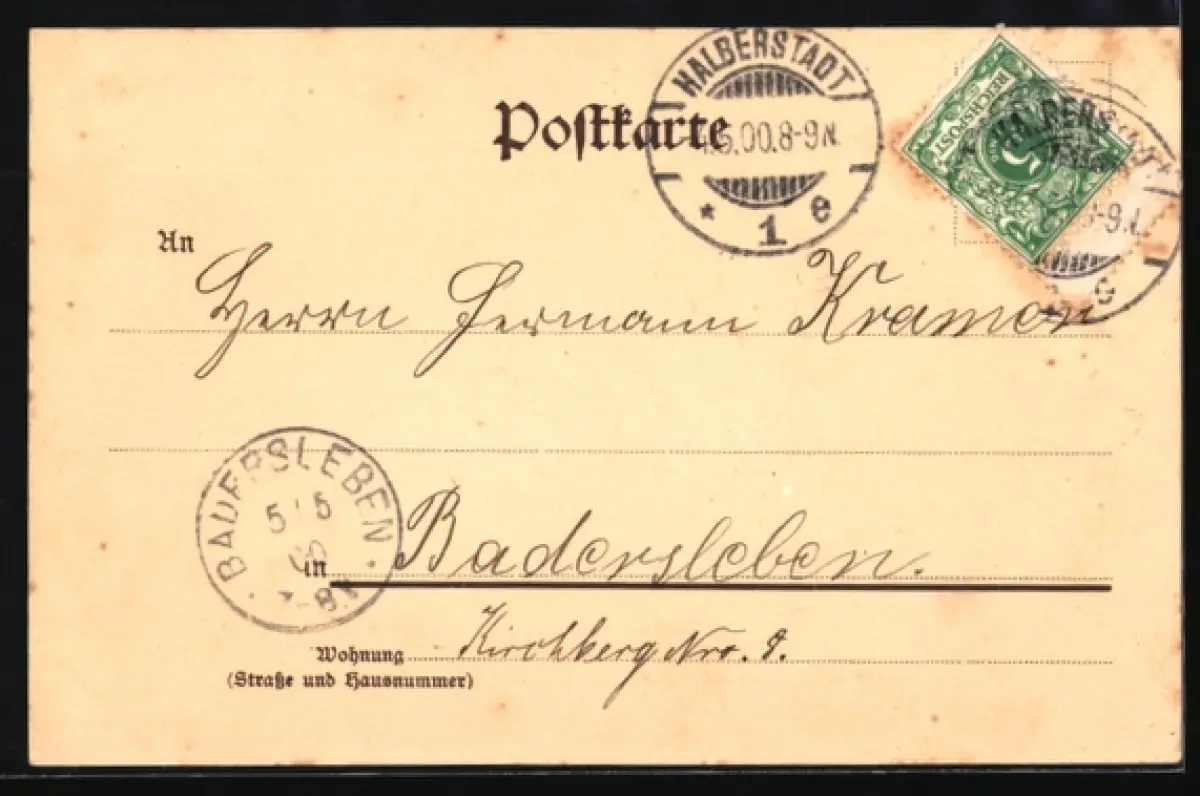 Postkarte
HALBERSTADT
.5.00.8-9N.
* 1 e
REICHSPOST
5
HALBERS
8-9N.
e
An
Herrn Hermann Kramon
BADERSLEBEN
5 5
00
7-8V
in Badersleben.
Wohnung Kirchberg Nro. 9.
(Straße und Hausnummer)